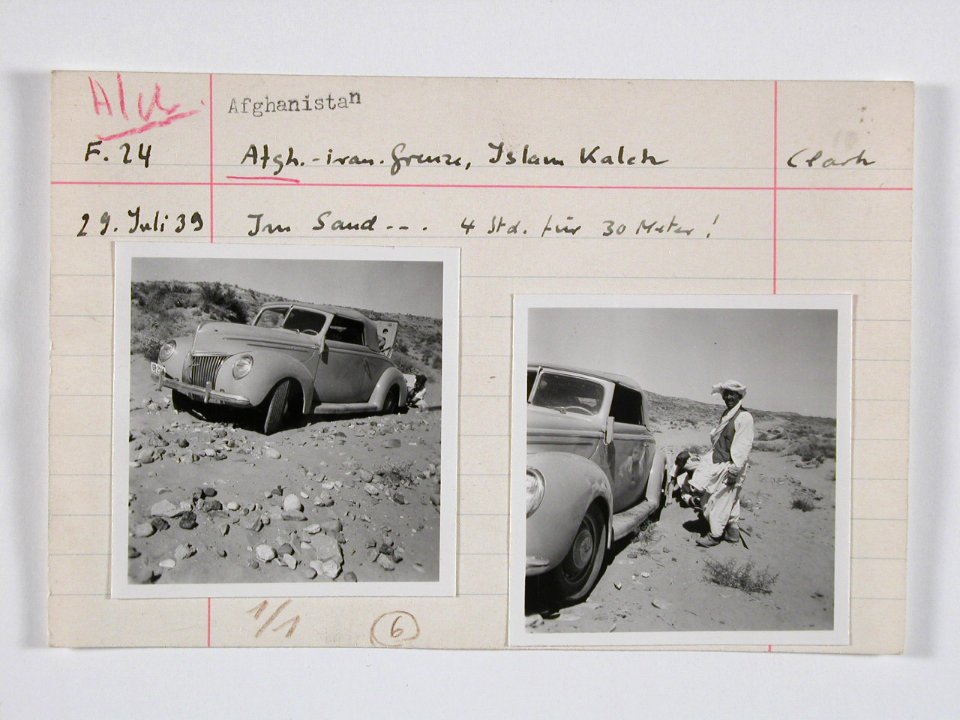 Afghanistan
F. 24 Afgh.-iran. Grenze, Islam Kaleh
29. Juli 39 Im Sand --. 4 Std. für 30 Meter!
1/1 6